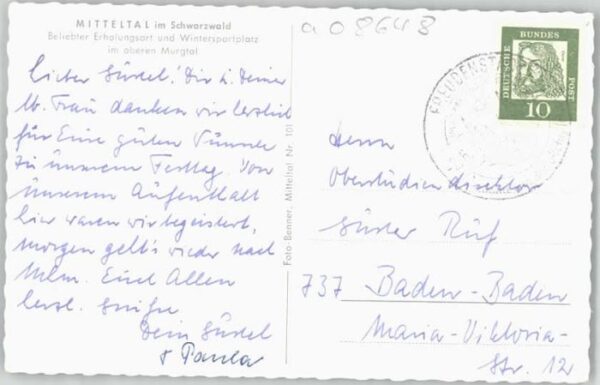 a 08648
MITTELTAL im Schwarzwald
Beliebter Erholungsort und Wintersportplatz
im oberen Murgtal
Lieber Südel! Dir u. Deiner
lb. Frau danken wir herzlich
für Eure guten Wünsche
zu unserem Festtag. Von
unserem Aufenthalt
hier waren wir begeistert,
morgen geht's wieder nach
Ulm. Euch Allen
herzl. Grüße
Dein Südel
+ Paula
Foto-Benner, Mitteltal Nr. 101
DEUTSCHE BUNDES POST
10
FREUDENST
Herrn
Oberstudiendirektor
Ruf
737 Baden-Baden
Maria-Viktoria-
Str. 12